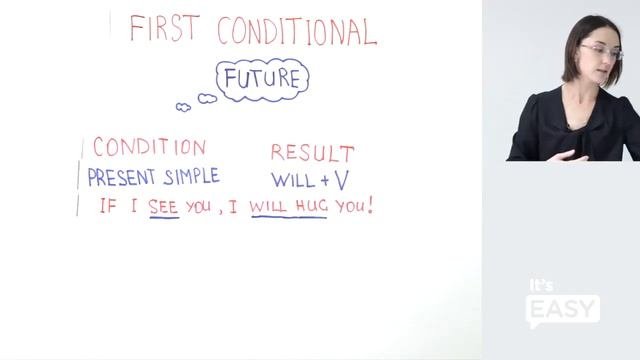 FIRST CONDITIONAL
FUTURE
CONDITION RESULT
PRESENT SIMPLE WILL + V
IF I SEE YOU, I WILL HUG YOU!
It's
EASY